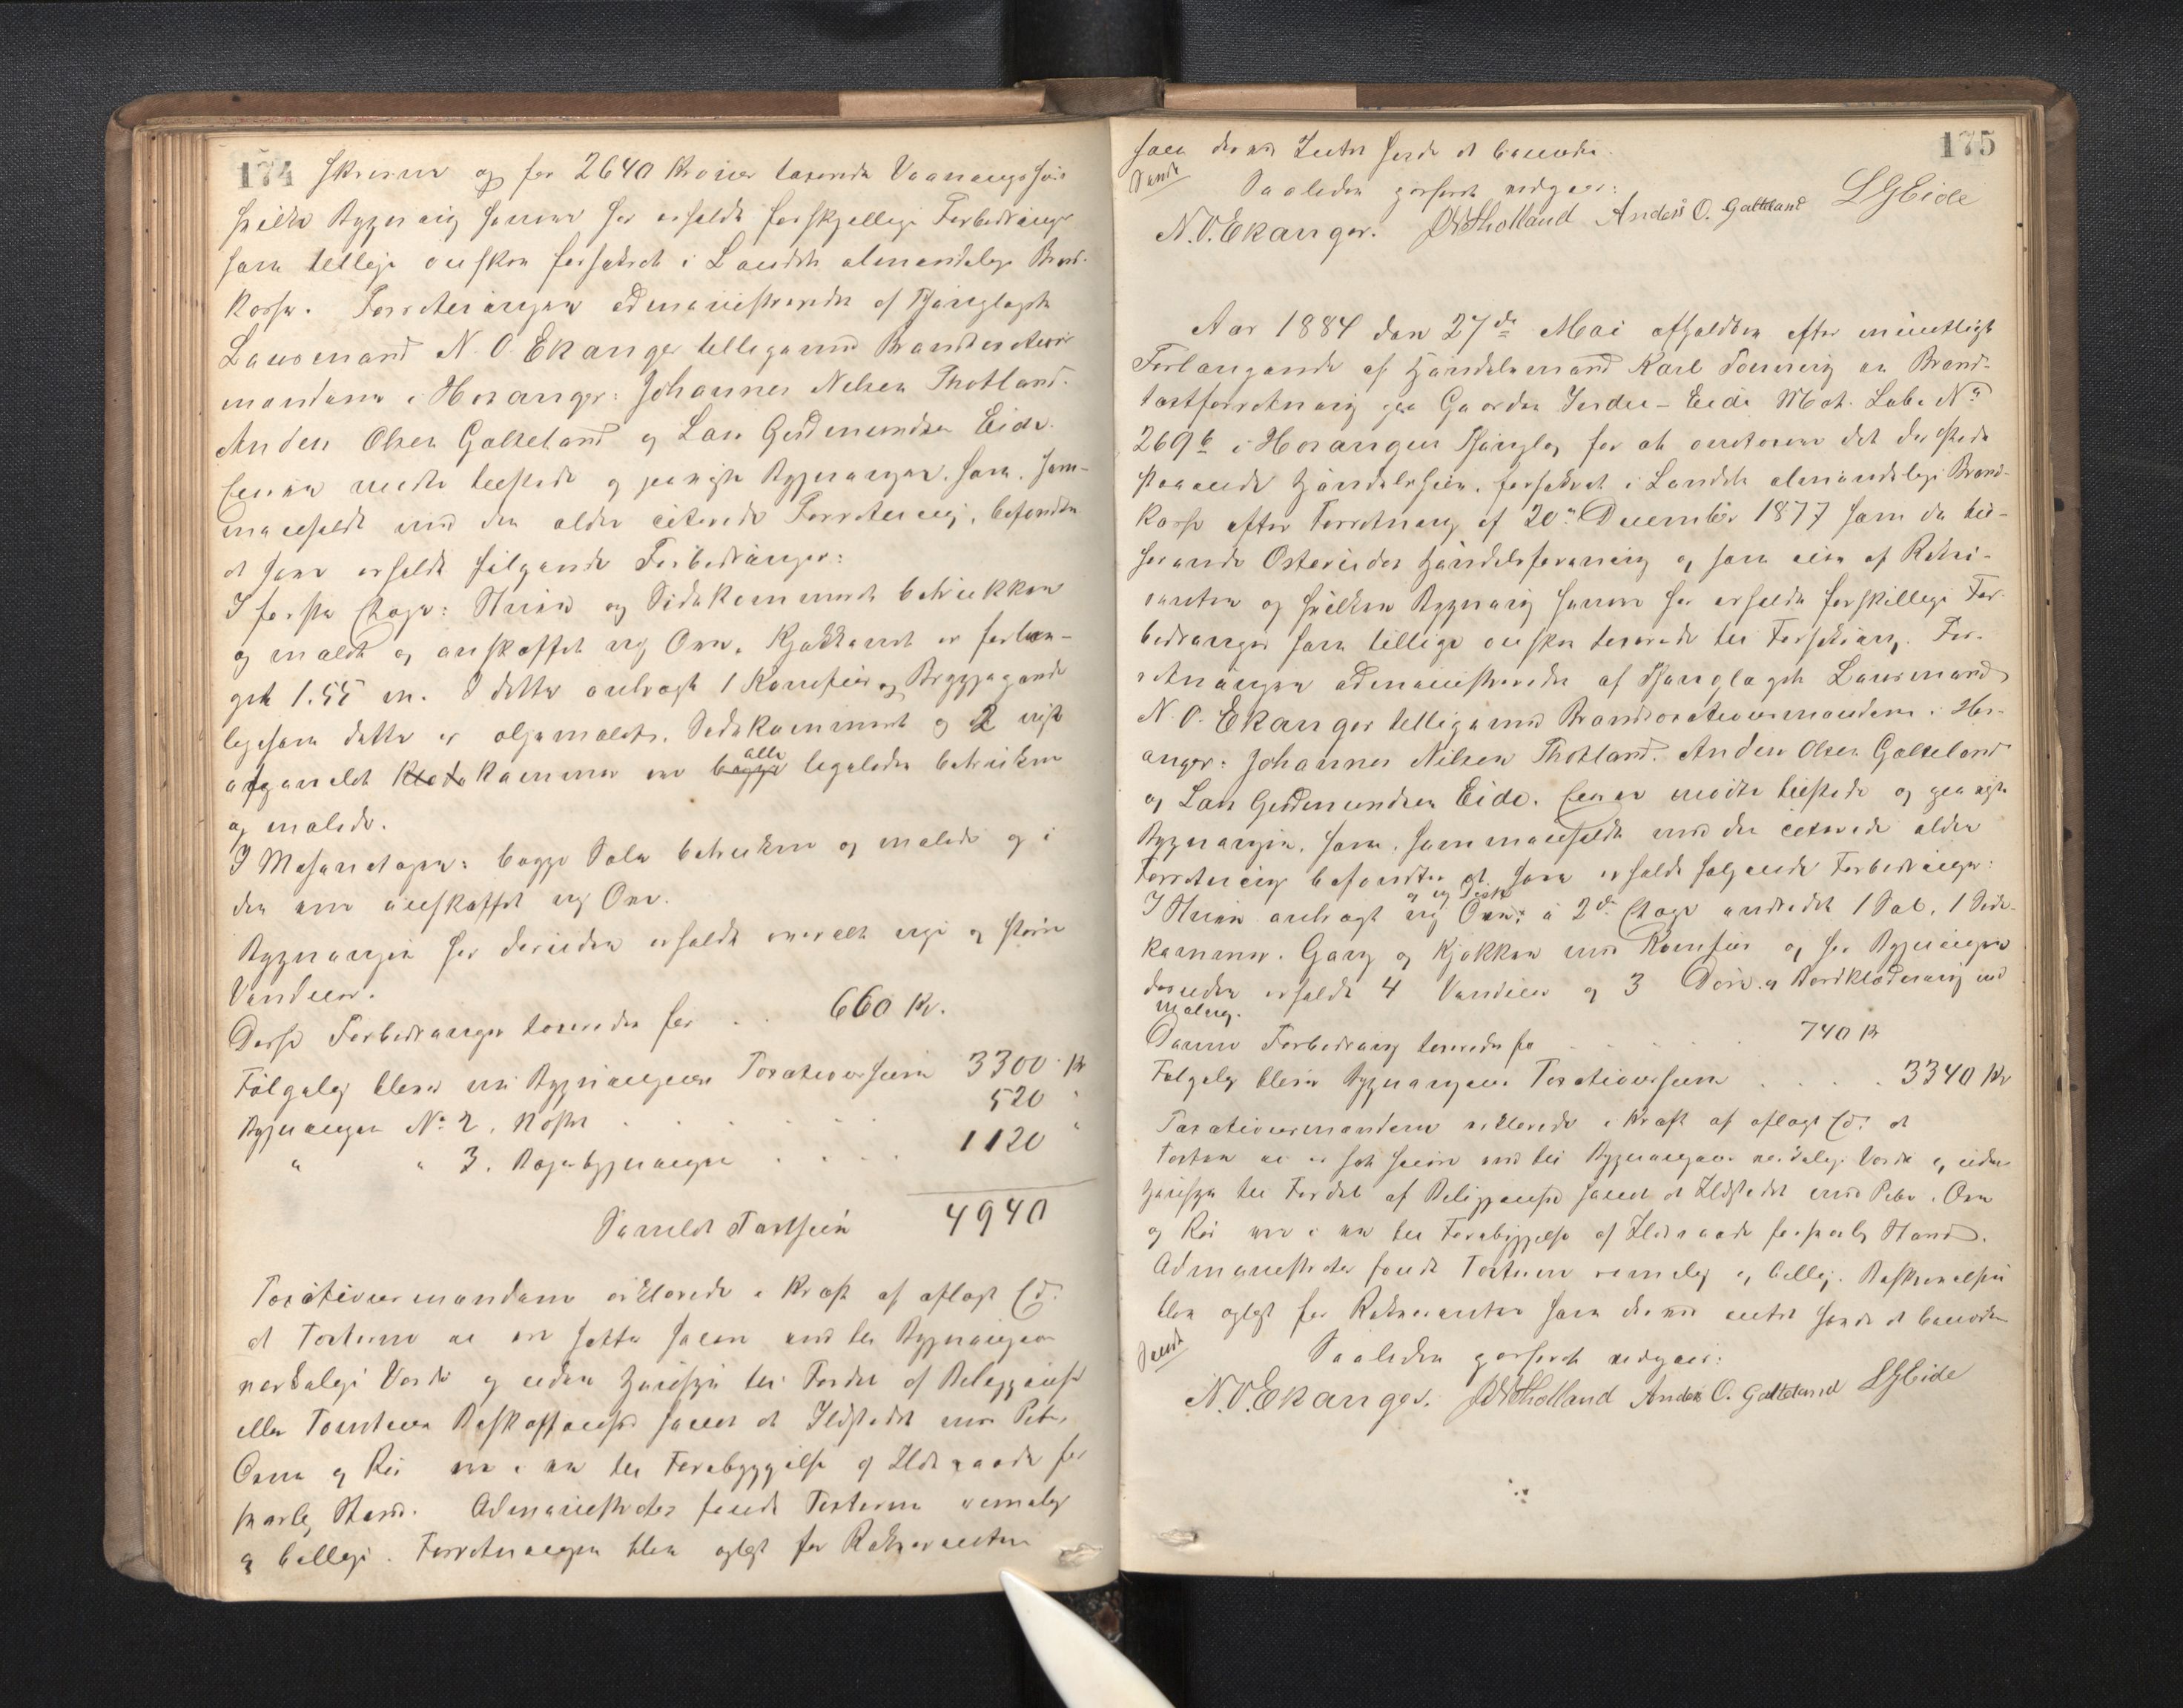 174
skreven og for 2640 Kroner taxerede Vaaningshus
hvilken Bygning senere har erholdt forskjellige Forbedringer
som tillige ønskes forsikret i Landets almindelige Brand-
kasse. Forretningen administreredes af Thinglagets
Lensmand N. O. Ekanger tilligemed Brandtaxations-
mændene i Hosanger: Johannes Nilsen Thotland.
Anders Olsen Galteland og Lars Gudmundsen Eide.
Enhver mødte tilstede og paa sigte Bygningen, som, sam-
menholdt med den ældre citerede Forretning, befandtes
at have erholdt følgende Forbedringer:
I første Etage: Stuen og Sidekammeret betrukken
og malet og anskaffet ny Ovn. Kjøkkenet er forlæn-
get 1.55 m. I dette anbragt 1 Komfur og Bryggepande
ligesom dette er oljemalet. Sidekammeret og 2 nyt
afpanelet Kammer ere alle ligeledes betrukne
og malede.
I Mesanetagen: begge Sale betrukne og malede og i
den ene anskaffet ny Ovn.
Bygningen har desuden erholdt overalt nye og større
Vinduer.
Disse Forbedringer taxeredes for . . 660 Kr.
Følgelig bliver nu Bygningens Taxationssum 3300 Kr
Bygningen No 2, Nøstet . . . . . 520 "
" " 3. Bagerbygningen . . . . 1120 "
Samlet Taxtsum 4940
Taxationsmændene erklærede i Kraft af aflagt Ed
at Taxterne ei ere satte høiere end til Bygningens
virkelige Værdi og uden Hensyn til Fordel af Beliggenhed
eller Tomtens Beskaffenhed samt at Ildstedet med Pibe,
Ovne og Rør ere i en til Forebyggelse af Ildsvaade for-
svarlig Stand. Administrator fandt Taxterne rimelig
og billige. Forretningen blev oplæst for Rekvirenten
175
som dermed Intet havde at bemærke.
Sluttet
Saaledes passeret vedgaar:
N.O.Ekanger. JNThotland Anders O. Galteland LGEide
Aar 1884 den 27de Mai afholdtes efter mundtligt
Forlangende af Handelsmand Karl Tønning en Brand-
taxtforretning paa Gaarden Indre-Eide Mat. Løbe No
269b i Hosanger Thinglag for at omtaxere det dersteds
staaende Handelshus, forsikret i Landets almindelige Brand-
kasse efter Forretning af 20de December 1877 som da til-
hørende Osterfjordens Handelsforening og som eies af Rekvi-
renten og hvilken Bygning senere har erholdt forskjellige For-
bedringer som tillige ønskes taxerede til Forsikring. For-
retningen administreredes af Thinglagets Lensmand
N. O. Ekanger tilligemed Brandtaxationsmændene i Hos-
anger: Johannes Nilsen Thotland. Anders Olsen Galteland
og Lars Gudmundsen Eide. Enhver mødte tilstede og paa sigte
Bygningen, som, sammenholdt med den citerede ældre
Forretning befandtes at have erholdt følgende Forbedringer:
og ny Disk
I Stuen anbragt ny Ovn; i 2den Etage indredet 1 Sal, 1 Side-
kammer. Gang og Kjøkken med Komfur og har Bygningen
desuden erholdt 4 Vinduer og 3 Døre. og Bordklædning med
Maling.
Denne Forbedring taxeredes for . . . . . 740 Kr
Følgelig bliver Bygningens Taxationssum . . . . 3340 Kr
Taxationsmændene erklærede i Kraft af aflagt Ed at
Taxten ei er sat høiere end til Bygningens virkelige Værdi og uden
Hensyn til Fordel af Beliggenhed samt at Ildstedet med Pibe, Ovn
og Rør ere i en til Forebyggelse af Ildsvaade forsvarlig Stand.
Administrator fandt Taxterne rimelig og billig. Beskrivelsen
blev oplæst for Rekvirenten som dermed intet havde at bemærke
Sluttet
Saaledes passeret vedgaar:
N.O.Ekanger. JNThotland Anders O. Galteland LGEide